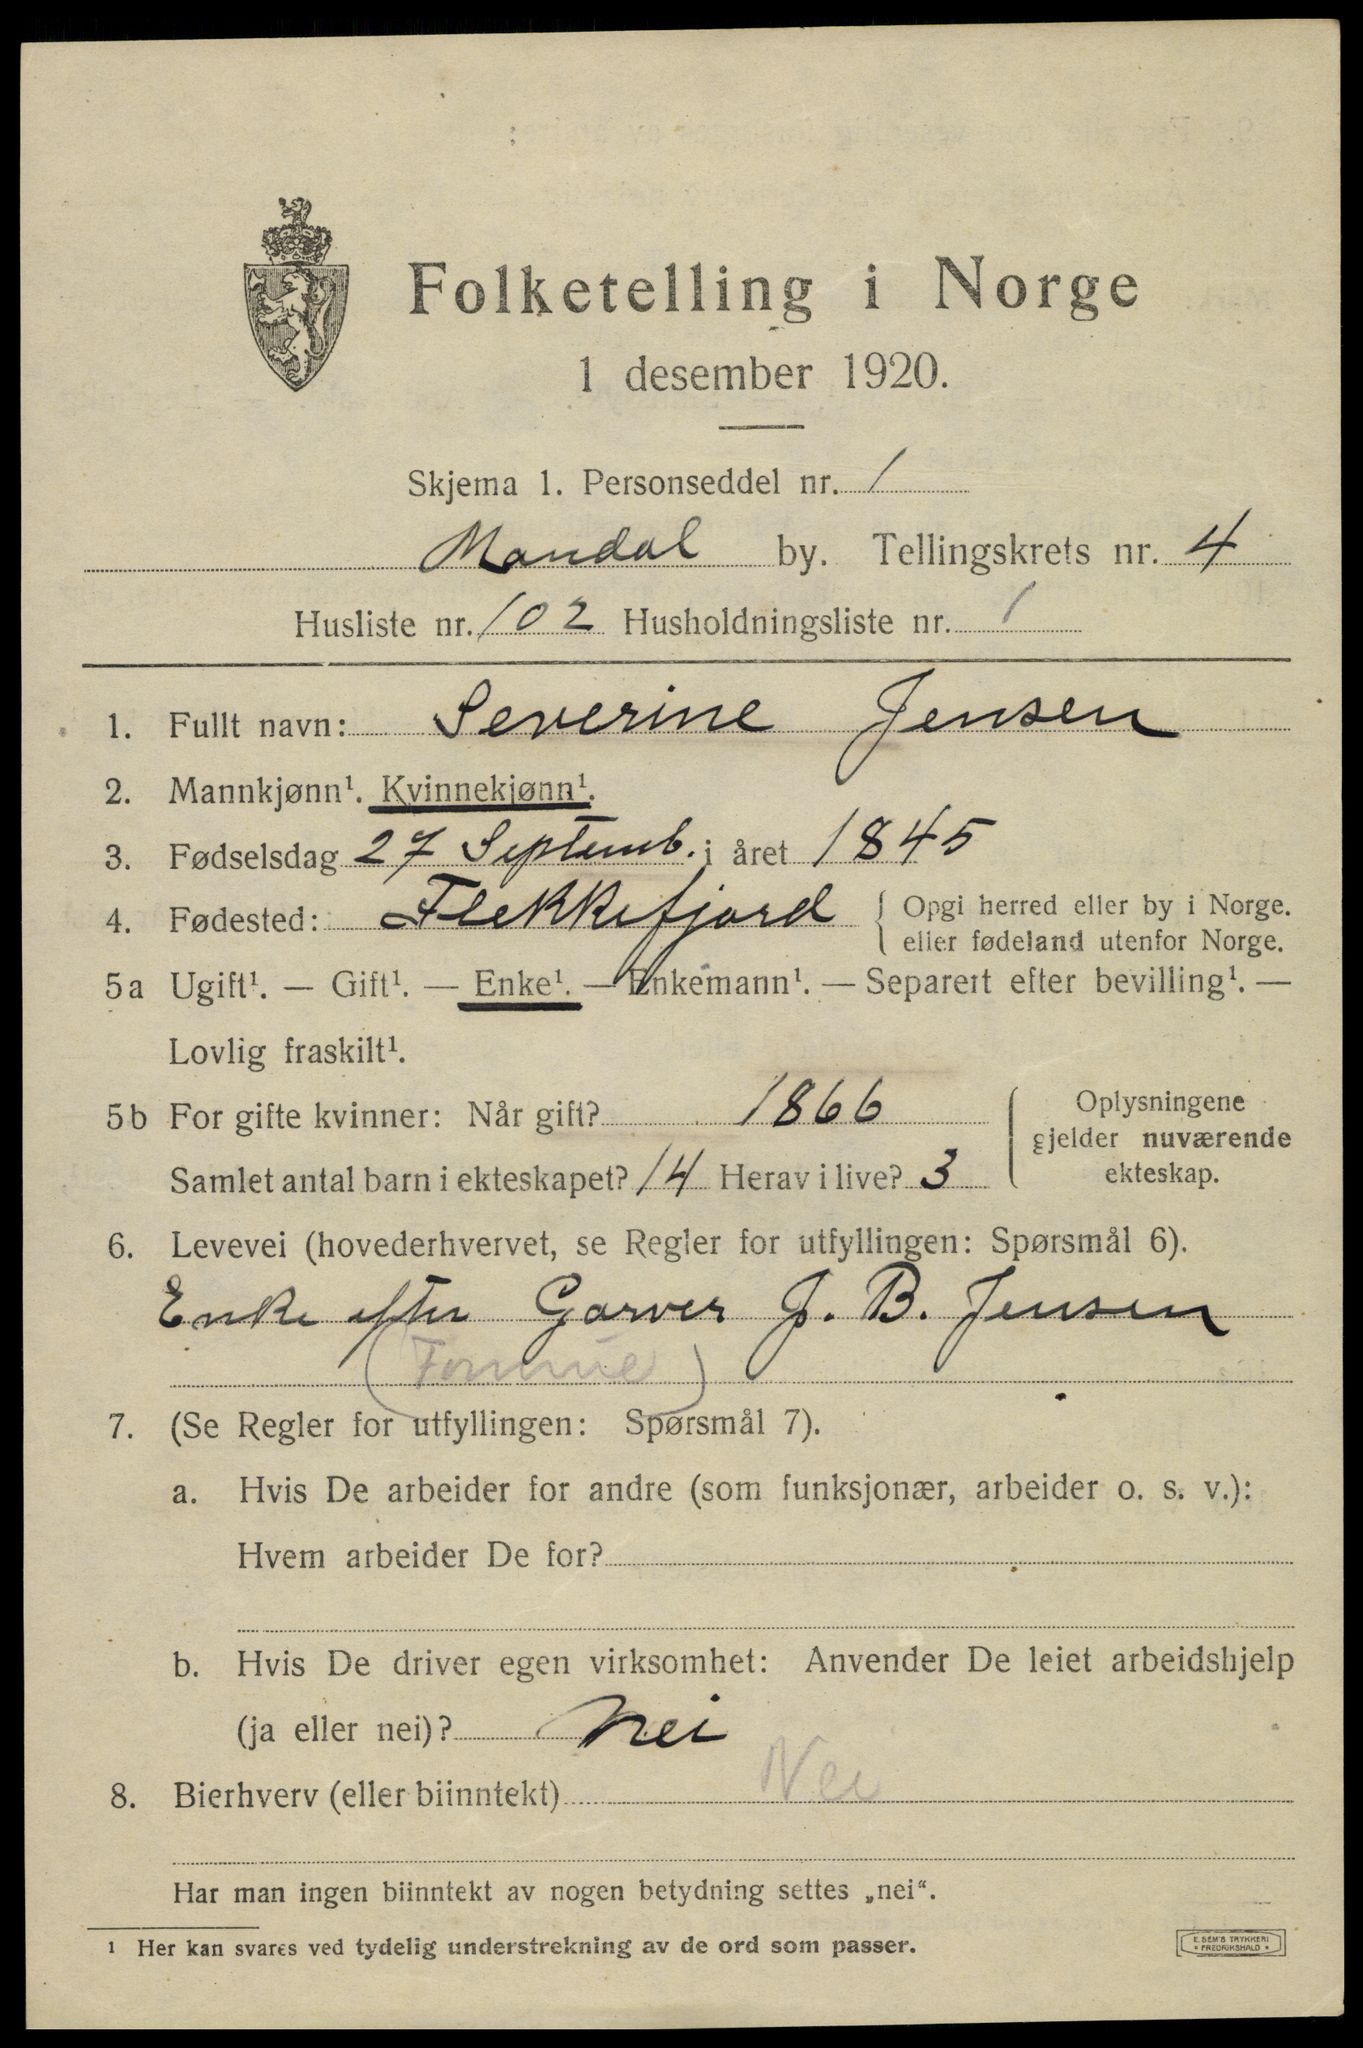 Folketelling i Norge
1 desember 1920.
Skjema 1. Personseddel nr. 1
Mandal by. Tellingskrets nr. 4
Husliste nr. 102 Husholdningsliste nr. 1
1. Fullt navn: Severine Jensen
2. Mannkjønn¹. Kvinnekjønn¹.
3. Fødselsdag 27 Septemb. i året 1845
4. Fødested: Flekkefjord { Opgi herred eller by i Norge.
eller fødeland utenfor Norge.
5a Ugift¹. — Gift¹. — Enke¹. — Enkemann¹. — Separert efter bevilling¹. —
Lovlig fraskilt¹.
5b For gifte kvinner: Når gift? 1866
Samlet antal barn i ekteskapet? 14 Herav i live? 3
Oplysningene
gjelder nuværende
ekteskap.
6. Levevei (hovederhvervet, se Regler for utfyllingen: Spørsmål 6).
Enke efter Garver J. B. Jensen
(Formue)
7. (Se Regler for utfyllingen: Spørsmål 7).
a. Hvis De arbeider for andre (som funksjonær, arbeider o. s. v.):
Hvem arbeider De for?
b. Hvis De driver egen virksomhet: Anvender De leiet arbeidshjelp
(ja eller nei)? Nei
8. Bierhverv (eller biinntekt) Nei
Har man ingen biinntekt av nogen betydning settes „nei“.
¹ Her kan svares ved tydelig understrekning av de ord som passer.
E. SEM'S TRYKKERI
* FREDRIKSHALD *